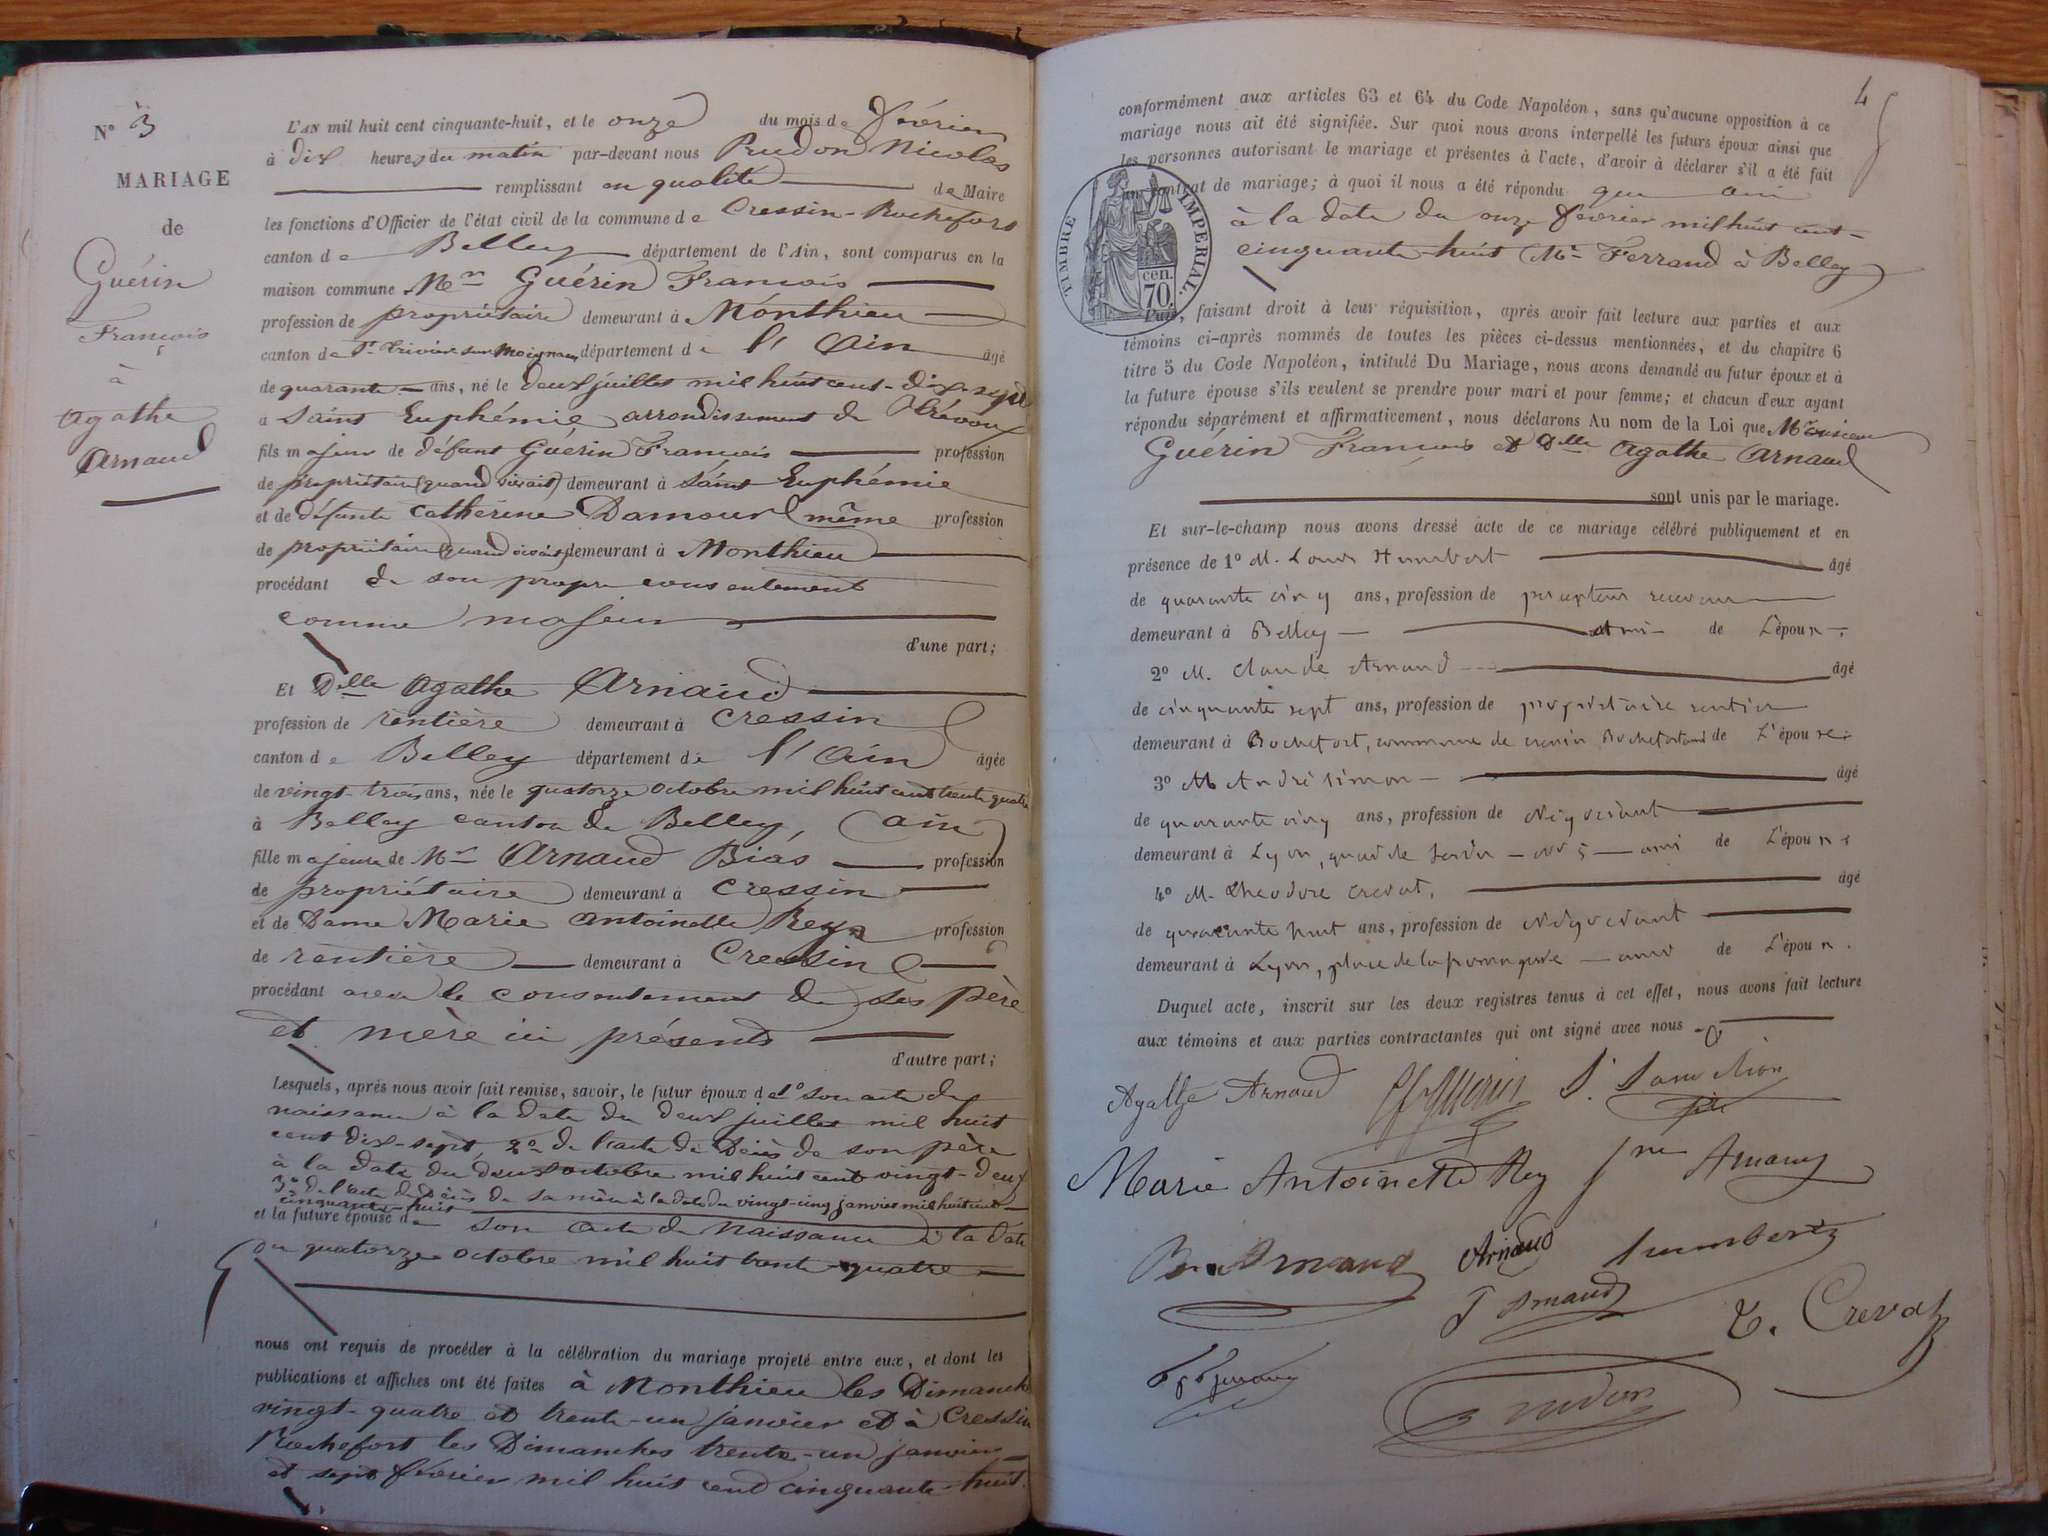 N° 3
MARIAGE
de
Guérin
François
à
Agathe
Arnaud
L'AN mil huit cent cinquante-huit, et le onze du mois de février
à dix heures du matin par-devant nous Prudon Nicolas
remplissant en qualité de Maire
les fonctions d'Officier de l'état civil de la commune de Cressin-Rochefort
canton de Belley département de l'Ain, sont comparus en la
maison commune Mr Guérin François
profession de propriétaire demeurant à Monthieu
canton de St Trivier sur Moignans département de l'Ain âgé
de quarante ans, né le deux juillet mil huit cent-dix-sept
a saint Euphémie arrondissement de Trévoux
fils majeur de défunt Guérin François profession
de propriétaire (quand vivait) demeurant à saint Euphémie
et de défunte Catherine Damour même profession
de propriétaire (quand vivait) demeurant à Monthieu
procédant de son propre consentement
comme majeur
d'une part;
Et Dlle Agathe Arnaud
profession de rentière demeurant à Cressin
canton de Belley département de l'Ain âgée
de vingt-trois ans, née le quatorze octobre mil huit cent trente quatre
à Belley canton de Belley, (Ain)
fille majeure de Mr Arnaud Bias profession
de propriétaire demeurant à Cressin
et de Dame Marie Antoinette Rey profession
de rentière demeurant à Cressin
procédant avec le consentement de ses père
et mère ici présents
d'autre part;
Lesquels, après nous avoir fait remise, savoir, le futur époux de 1° son acte de
naissance à la date du deux juillet mil huit
cent dix-sept, 2° de l'acte de Décès de son père
à la date du deux octobre mil huit cent vingt-deux
3° de l'acte de décès de sa mère à la date du vingt-cinq janvier mil huit cent
cinquante-huit
et la future épouse de son acte de naissance à la date
du quatorze octobre mil huit trente-quatre
nous ont requis de procéder à la célébration du mariage projeté entre eux, et dont les
publications et affiches ont été faites à Monthieu les Dimanches
vingt-quatre et trente-un janvier et à Cressin
Rochefort les Dimanches trente-un janvier
et sept février mil huit cent cinquante-huit.
4
conformément aux articles 63 et 64 du Code Napoléon, sans qu'aucune opposition à ce
mariage nous ait été signifiée. Sur quoi nous avons interpellé les futurs époux ainsi que
les personnes autorisant le mariage et présentes à l'acte, d'avoir à déclarer s'il a été fait
un contrat de mariage; à quoi il nous a été répondu que oui
à la date du onze février mil huit cent-
cinquante-huit Me Ferrand à Belley
TIMBRE IMPERIAL.
cen.
70.
Puis, faisant droit à leur réquisition, après avoir fait lecture aux parties et aux
témoins ci-après nommés de toutes les pièces ci-dessus mentionnées, et du chapitre 6
titre 5 du Code Napoléon, intitulé Du Mariage, nous avons demandé au futur époux et à
la future épouse s'ils veulent se prendre pour mari et pour femme; et chacun d'eux ayant
répondu séparément et affirmativement, nous déclarons Au nom de la Loi que Monsieur
Guérin François et Dlle Agathe Arnaud
sont unis par le mariage.
Et sur-le-champ nous avons dressé acte de ce mariage célébré publiquement et en
présence de 1° M. Louis Humbert âgé
de quarante cinq ans, profession de percepteur receveur
demeurant à Belley ami de L'époux
2° M. Claude Arnaud âgé
de cinquante sept ans, profession de propriétaire rentier
demeurant à Rochefort, commune de cressin Rochefort de L'épouse
3° M André Simon âgé
de quarante cinq ans, profession de Négociant
demeurant à Lyon, quai de n° 5 ami de L'époux
4° M. Théodore Crevat, âgé
de quarante huit ans, profession de Négociant
demeurant à Lyon, place de la ami de L'époux.
Duquel acte, inscrit sur les deux registres tenus à cet effet, nous avons fait lecture
aux témoins et aux parties contractantes qui ont signé avec nous
Agathe Arnaud Guerin
Marie Antoinette Rey Arnaud
Arnaud Arnaud humbert
J Arnaud T. Crevat
Prudon